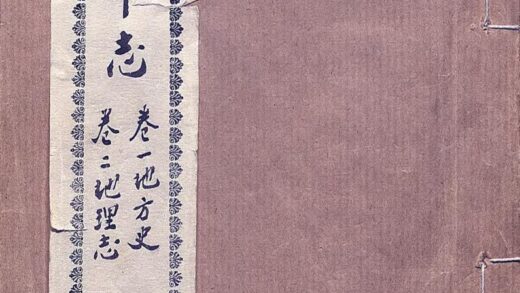 志
卷一地方史
卷二地理志